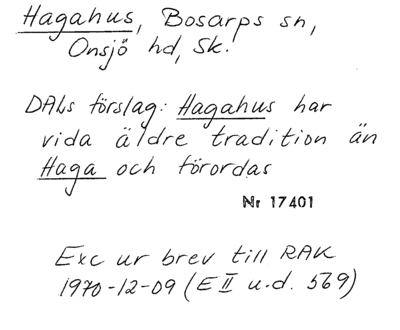 Hagahus, Bosarps sn,
Onsjö hd, Sk.
DALs förslag: Hagahus har
vida äldre tradition än
Haga och förordas
Nr 17401
Exc ur brev till RAK
1970-12-09 (E II u.d. 569)